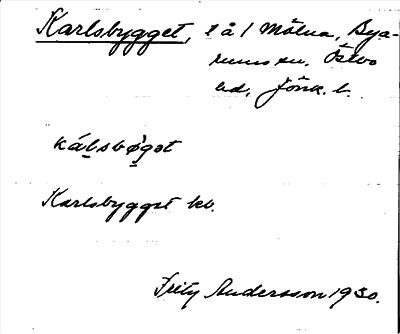 Karlsbygget, t å 1 Mölna, Bya-
rums sn, Östbo
hd, Jönk. l.
kálsbø̀gət
Karlsbygget kb.
Fritz Andersson 1930.